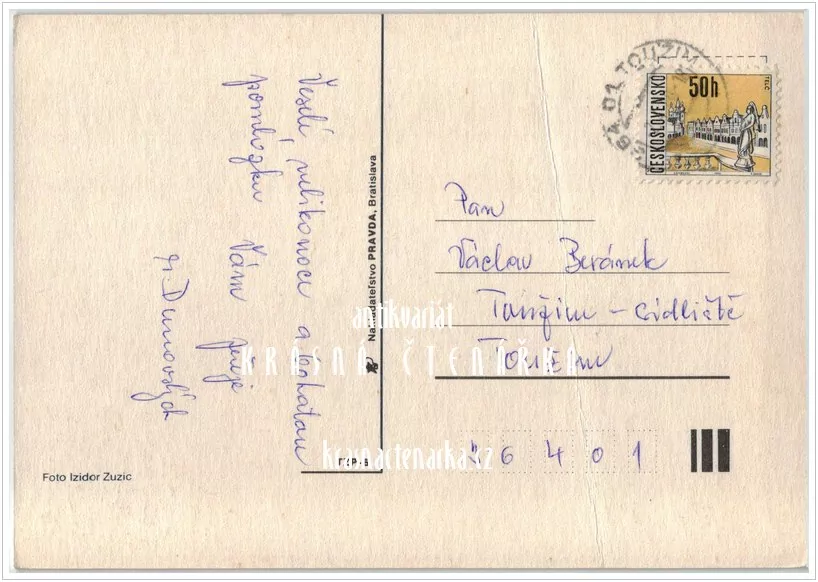 Veselé velikonoce a bohatou
pomlázku Vám přeje
r. Dunovských
Foto Izidor Zuzic
Nakladateľstvo PRAVDA, Bratislava
364 01 TOUŽIM
ČESKOSLOVENSKO
50h
TELČ
Pan
Václav Beránek
Toužim – sídliště
Toužim
36401
antikvariát
KRÁSNÁ ČTENÁŘKA
krasnactenarka.cz